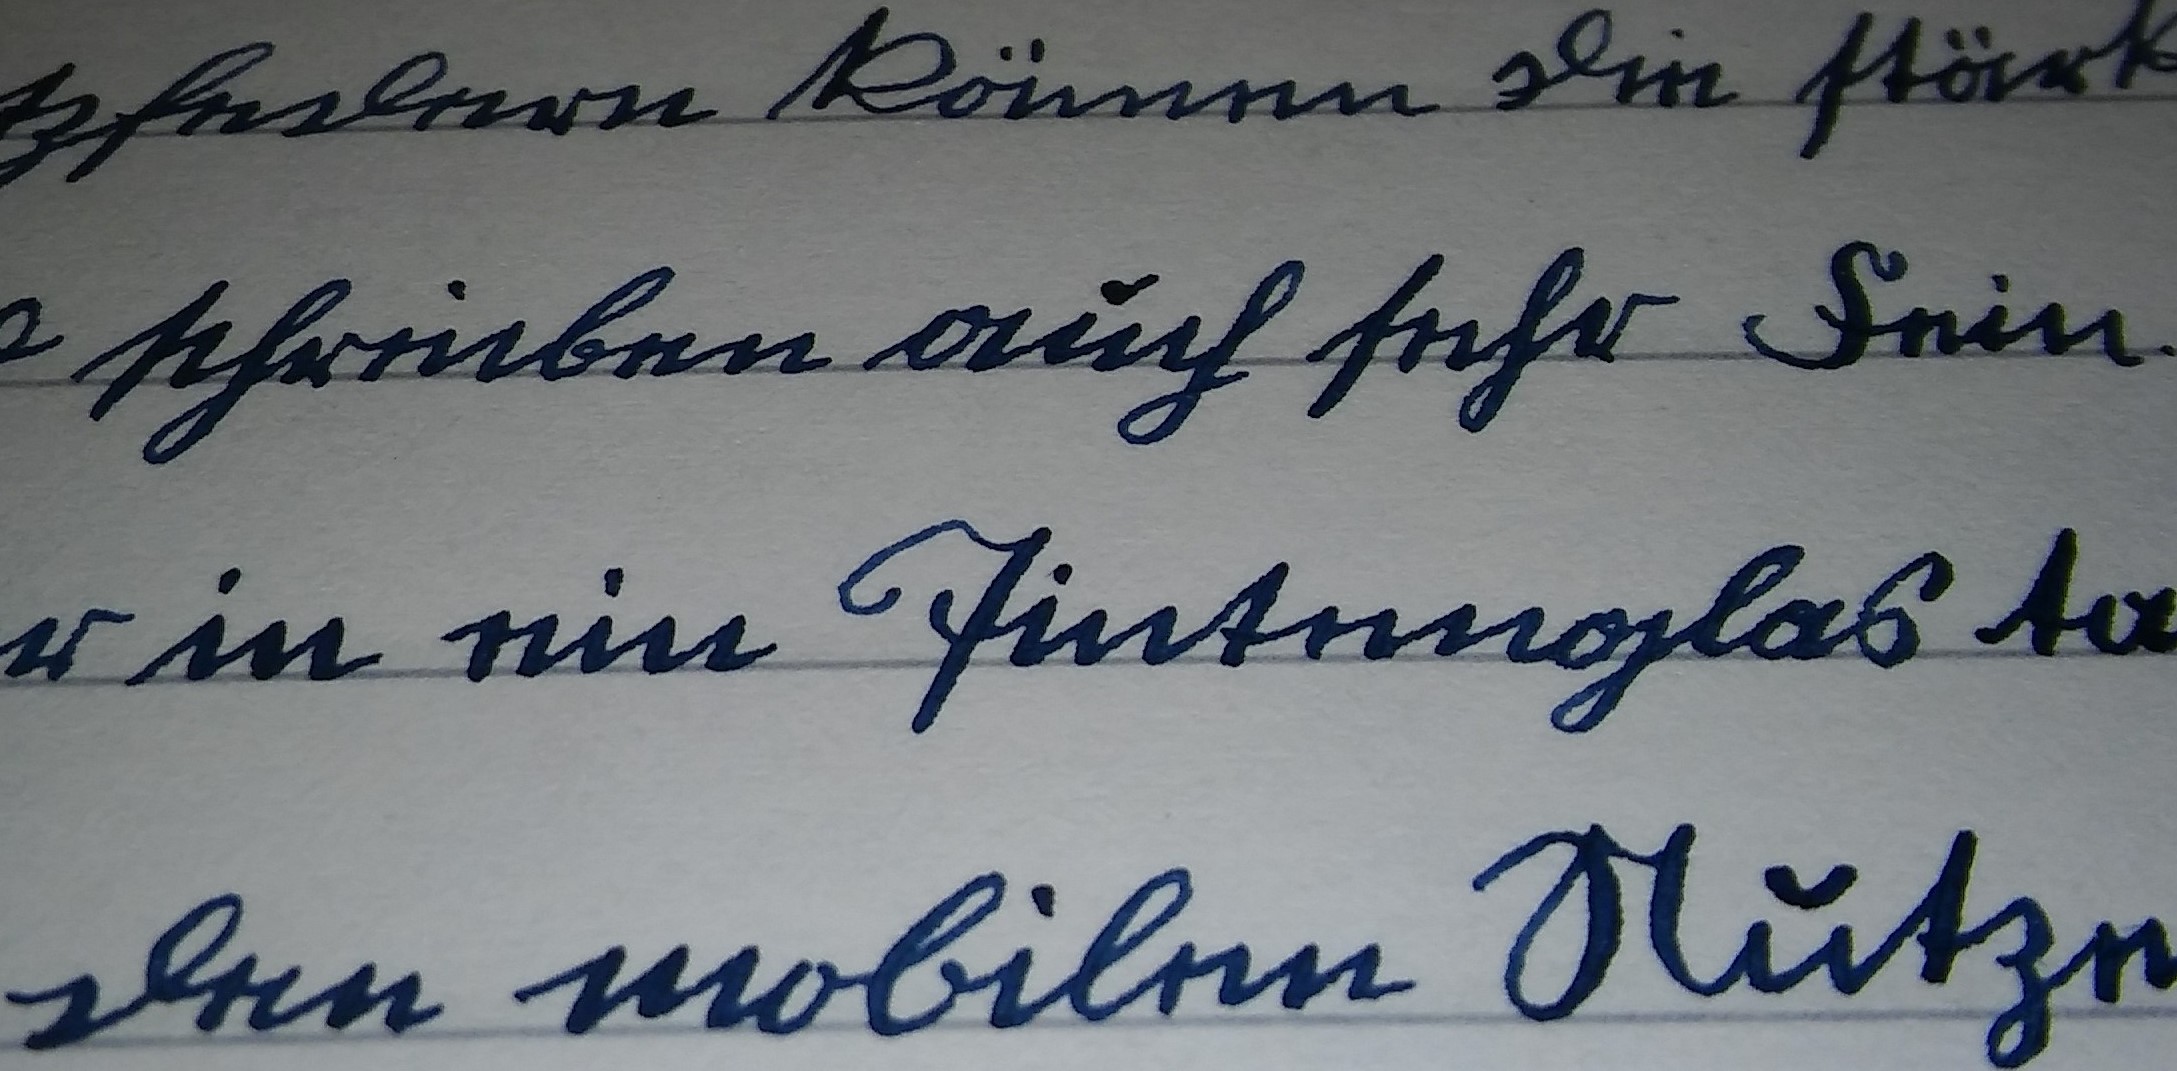 tzfedern können die stärk
schreiben auch sehr fein.
r in ein Tintenglas ta
den mobilen Nutze